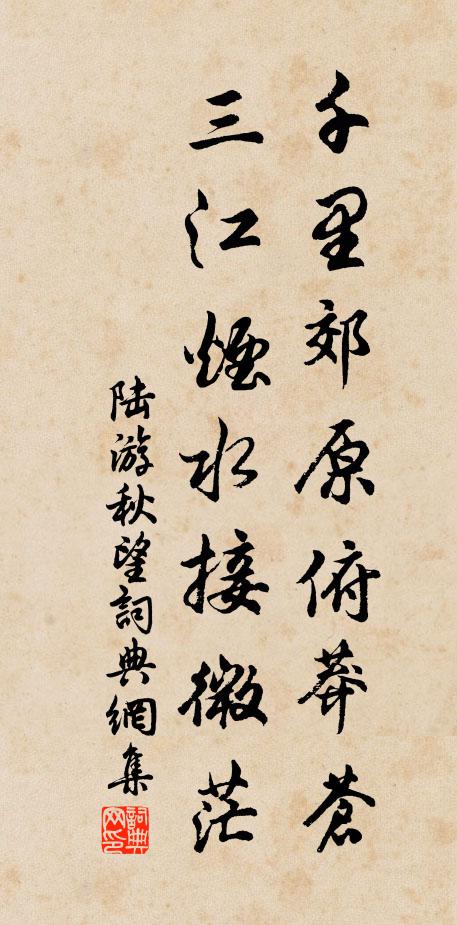 千里郊原俯莽苍
三江烟水接微茫
陆游秋望詞典網集
詞典网印